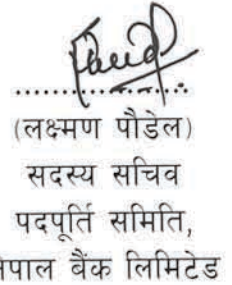 (लक्ष्मण पौडेल)
सदस्य सचिव
पदपूर्ति समिति,
नेपाल बैंक लिमिटेड